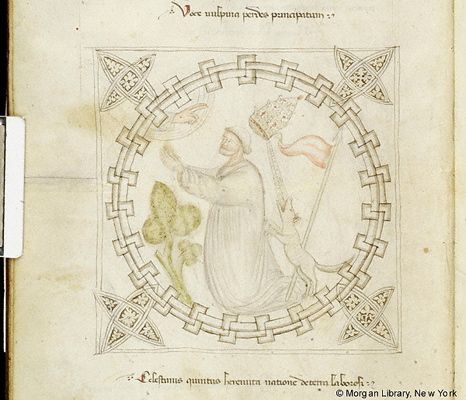 Voce vulpina perdes principatum
Celestinus quintus heremita natione de terra laboris
© Morgan Library, New York